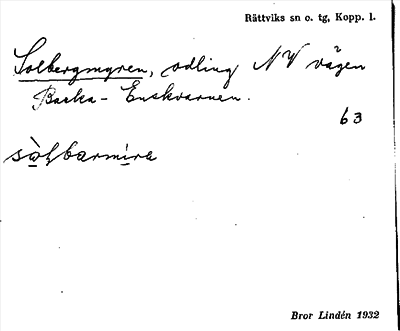 Rättviks sn o. tg, Kopp. l.
Solbergmyren, odling NV vägen
Backa - Enskvarnen.
63
Bror Lindén 1932